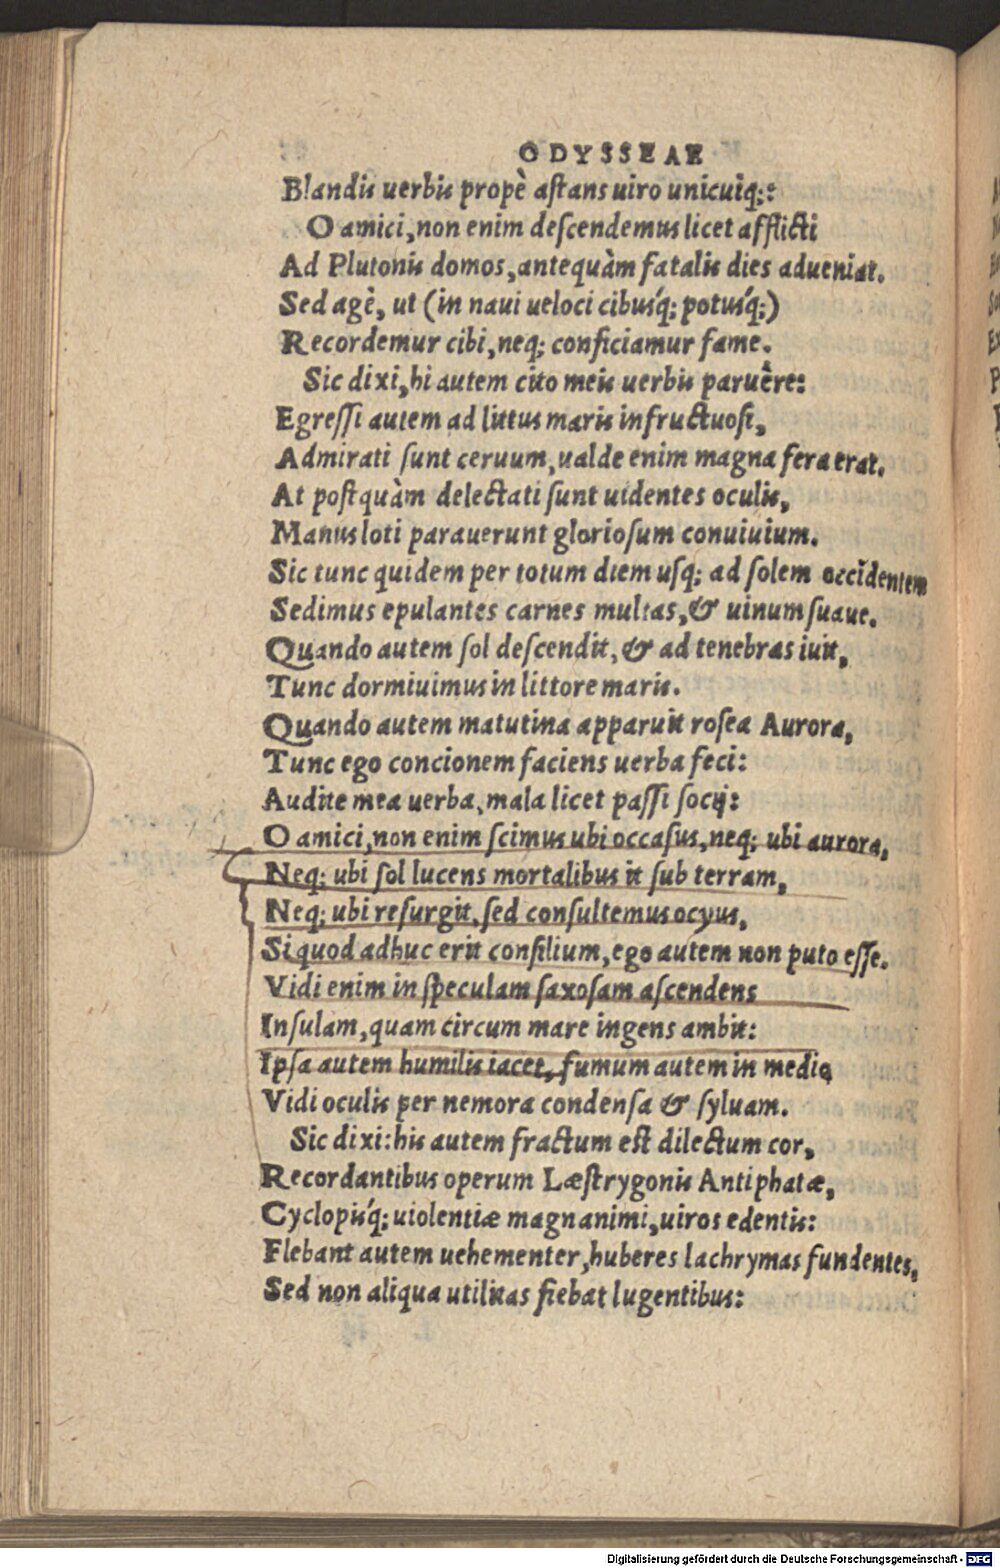 ODYSSEAE
Blandis uerbis propè aſtans uiro unicuiq;:
O amici, non enim deſcendemus licet afflicti
Ad Plutonis domos, antequàm fatalis dies adueniat.
Sed agè, ut (in naui ueloci cibusq́; potusq́;)
Recordemur cibi, neq; conficiamur fame.
Sic dixi, hi autem cito meis uerbis paruêre:
Egreſſi autem ad littus maris infructuoſi,
Admirati ſunt ceruum, ualde enim magna fera erat.
At poſtquàm delectati ſunt uidentes oculis,
Manus loti parauerunt glorioſum conuiuium.
Sic tunc quidem per totum diem uſq; ad ſolem occidentem
Sedimus epulantes carnes multas, & uinum ſuaue.
Quando autem ſol deſcendit, & ad tenebras iuit,
Tunc dormiuimus in littore maris.
Quando autem matutina apparuit roſea Aurora,
Tunc ego concionem faciens uerba feci:
Audite mea uerba, mala licet paſſi ſocij:
O amici, non enim ſcimus ubi occaſus, neq; ubi aurora,
Neq; ubi ſol lucens mortalibus it ſub terram,
Neq; ubi reſurgit, ſed conſultemus ocyus,
Si quod adhuc erit conſilium, ego autem non puto eſſe.
Vidi enim in ſpeculam ſaxoſam aſcendens
Inſulam, quam circum mare ingens ambit:
Ipſa autem humilis iacet, fumum autem in medio
Vidi oculis per nemora condenſa & ſyluam.
Sic dixi: his autem fractum eſt dilectum cor,
Recordantibus operum Læſtrygonis Antiphatæ,
Cyclopisq́; uiolentiæ magnanimi, uiros edentis:
Flebant autem uehementer, huberes lachrymas fundentes,
Sed non aliqua utilitas fiebat lugentibus:
Digitalisierung gefördert durch die Deutsche Forschungsgemeinschaft - DFG